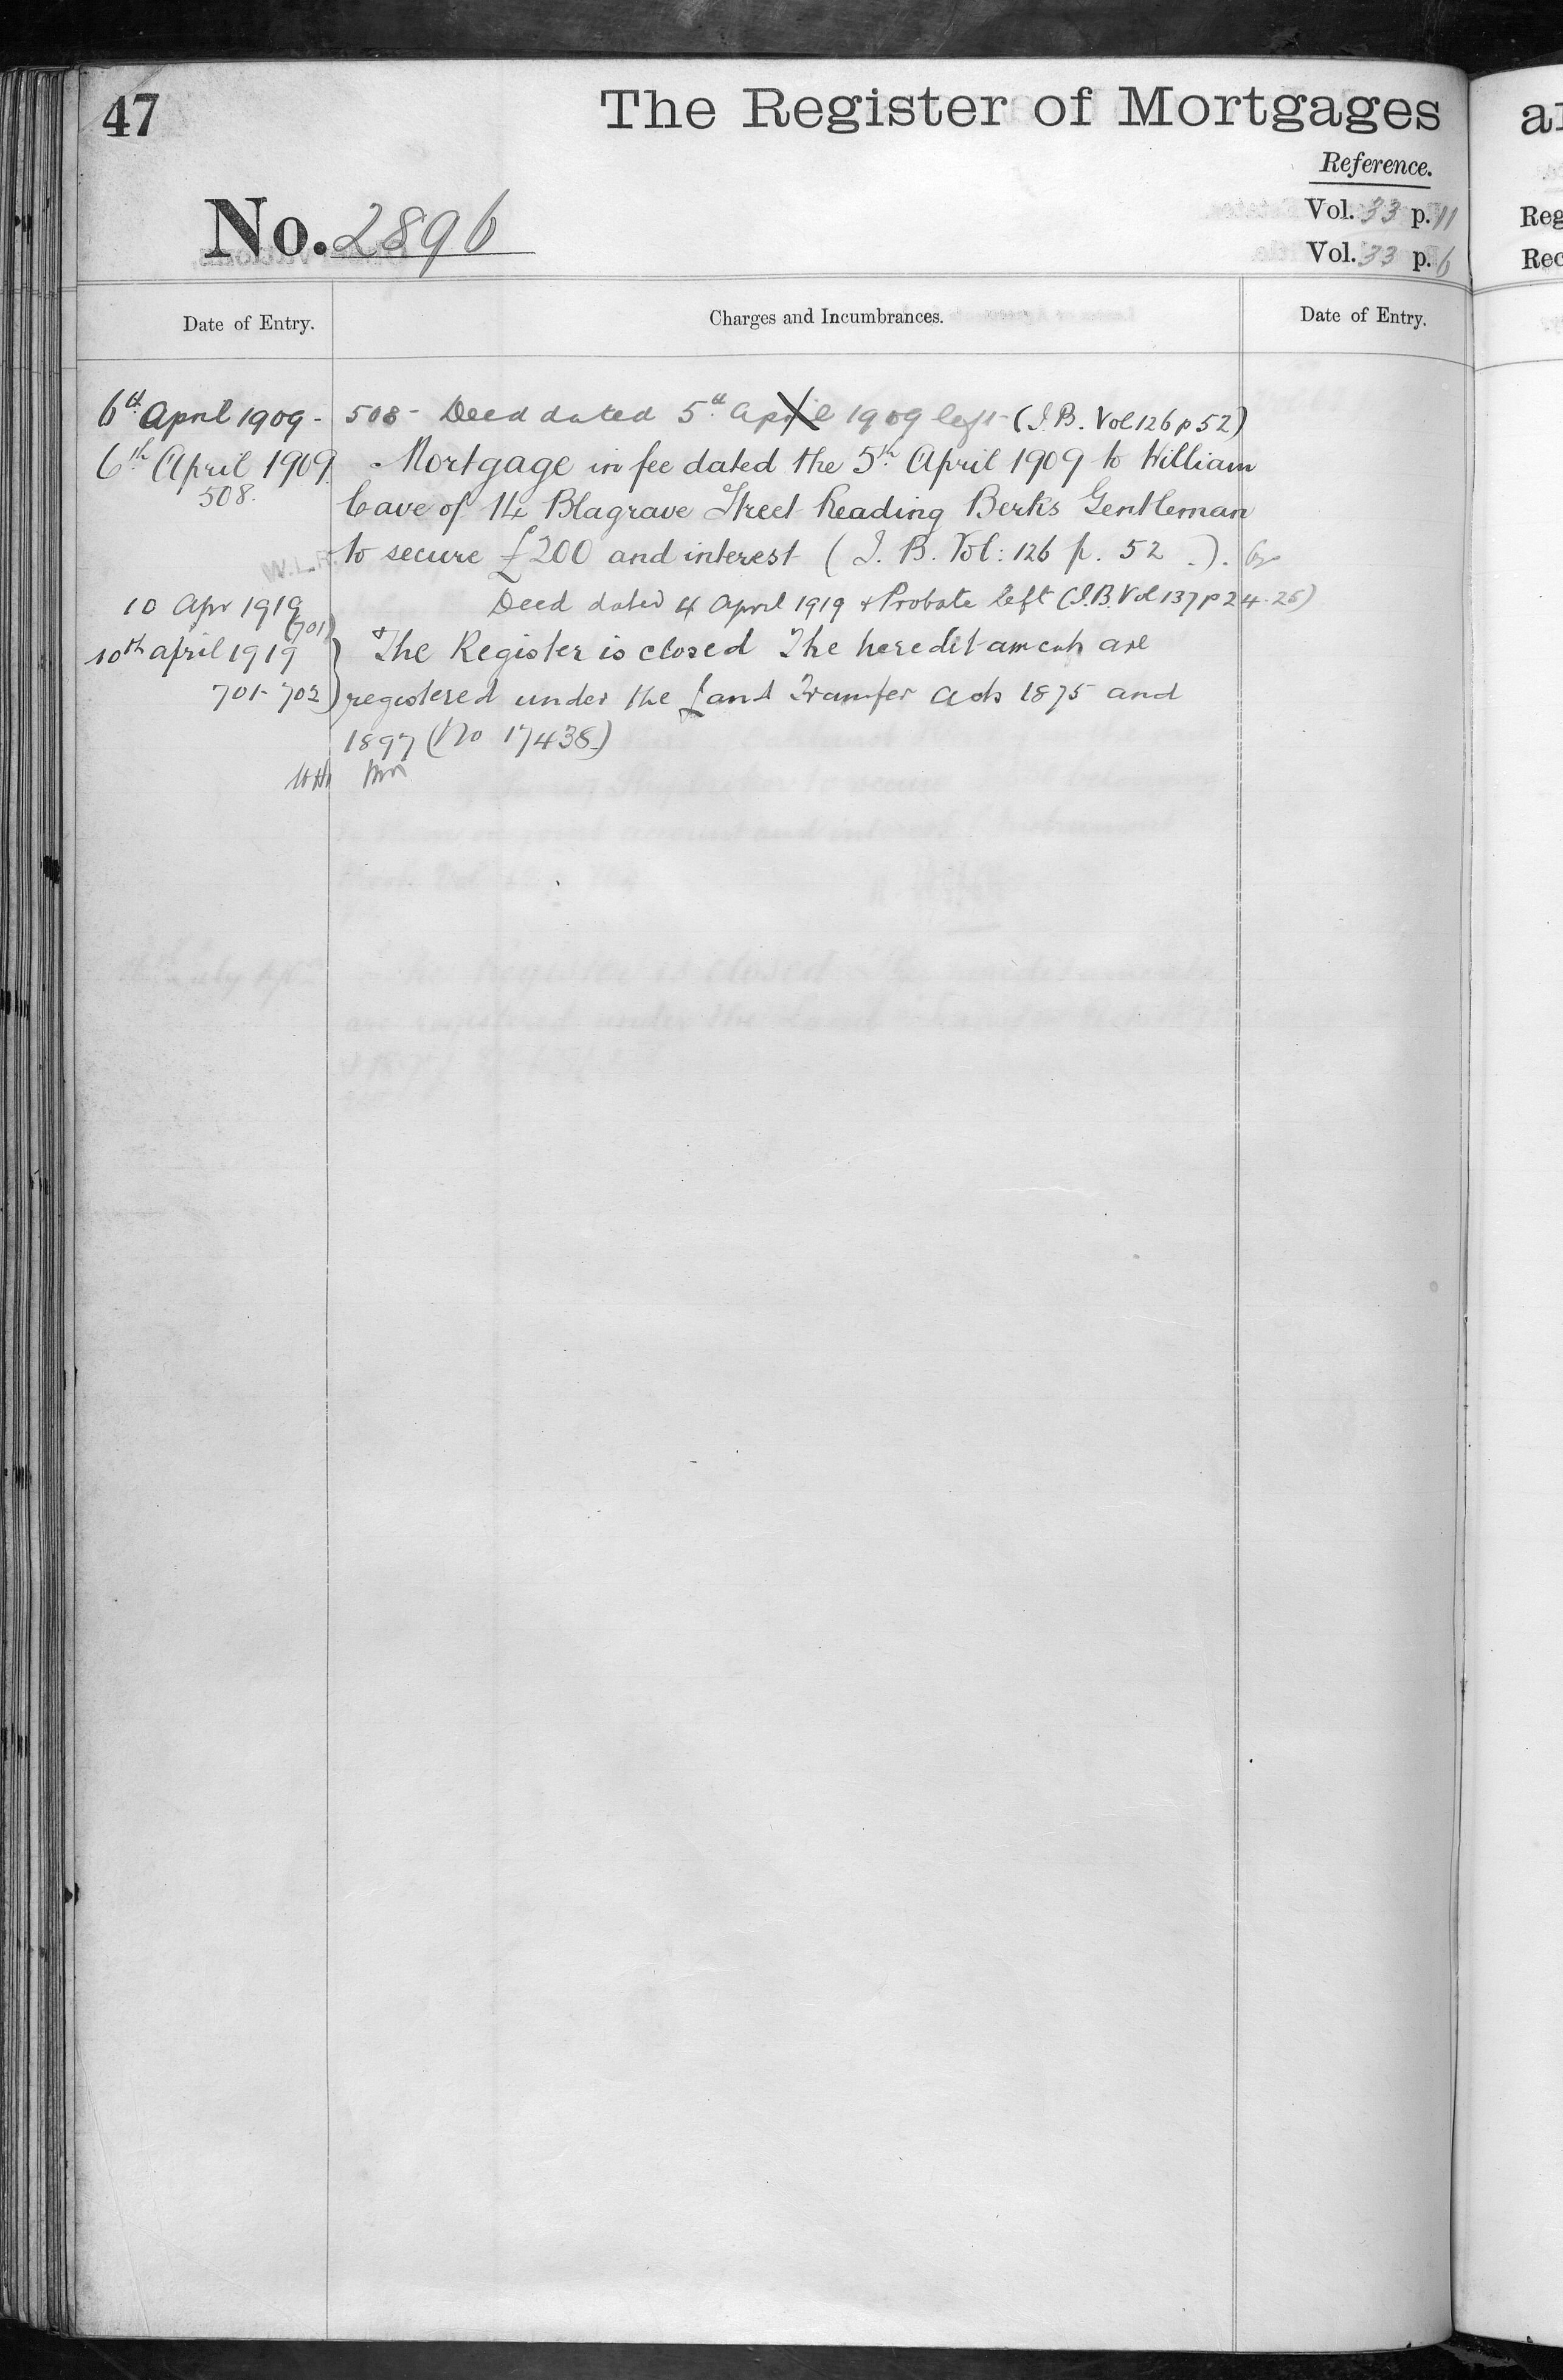 47
The Register of Mortgages
Reference.
No. 2896
Vol. 33 p. 11
Vol. 33 p. 6
Date of Entry.
Charges and Incumbrances.
Date of Entry.
6th April 1909 - 508 - Deed dated 5th April 1909 left (I.B. Vol 126 p 52)
6th April 1909. Mortgage in fee dated the 5th April 1909 to William
508. Cave of 14 Blagrave Street Reading Berks Gentleman
W.L.R. to secure £200 and interest (I. B. Vol: 126 p. 52 ).
10 Apr 1919 Deed dated 4 April 1919 & Probate left (I.B. Vol 137 p 24-25)
(701)
10th April 1919 } The Register is closed The hereditaments are
701-702 } registered under the Land Transfer Acts 1875 and
1897 (No 17438)
Reg
Rec